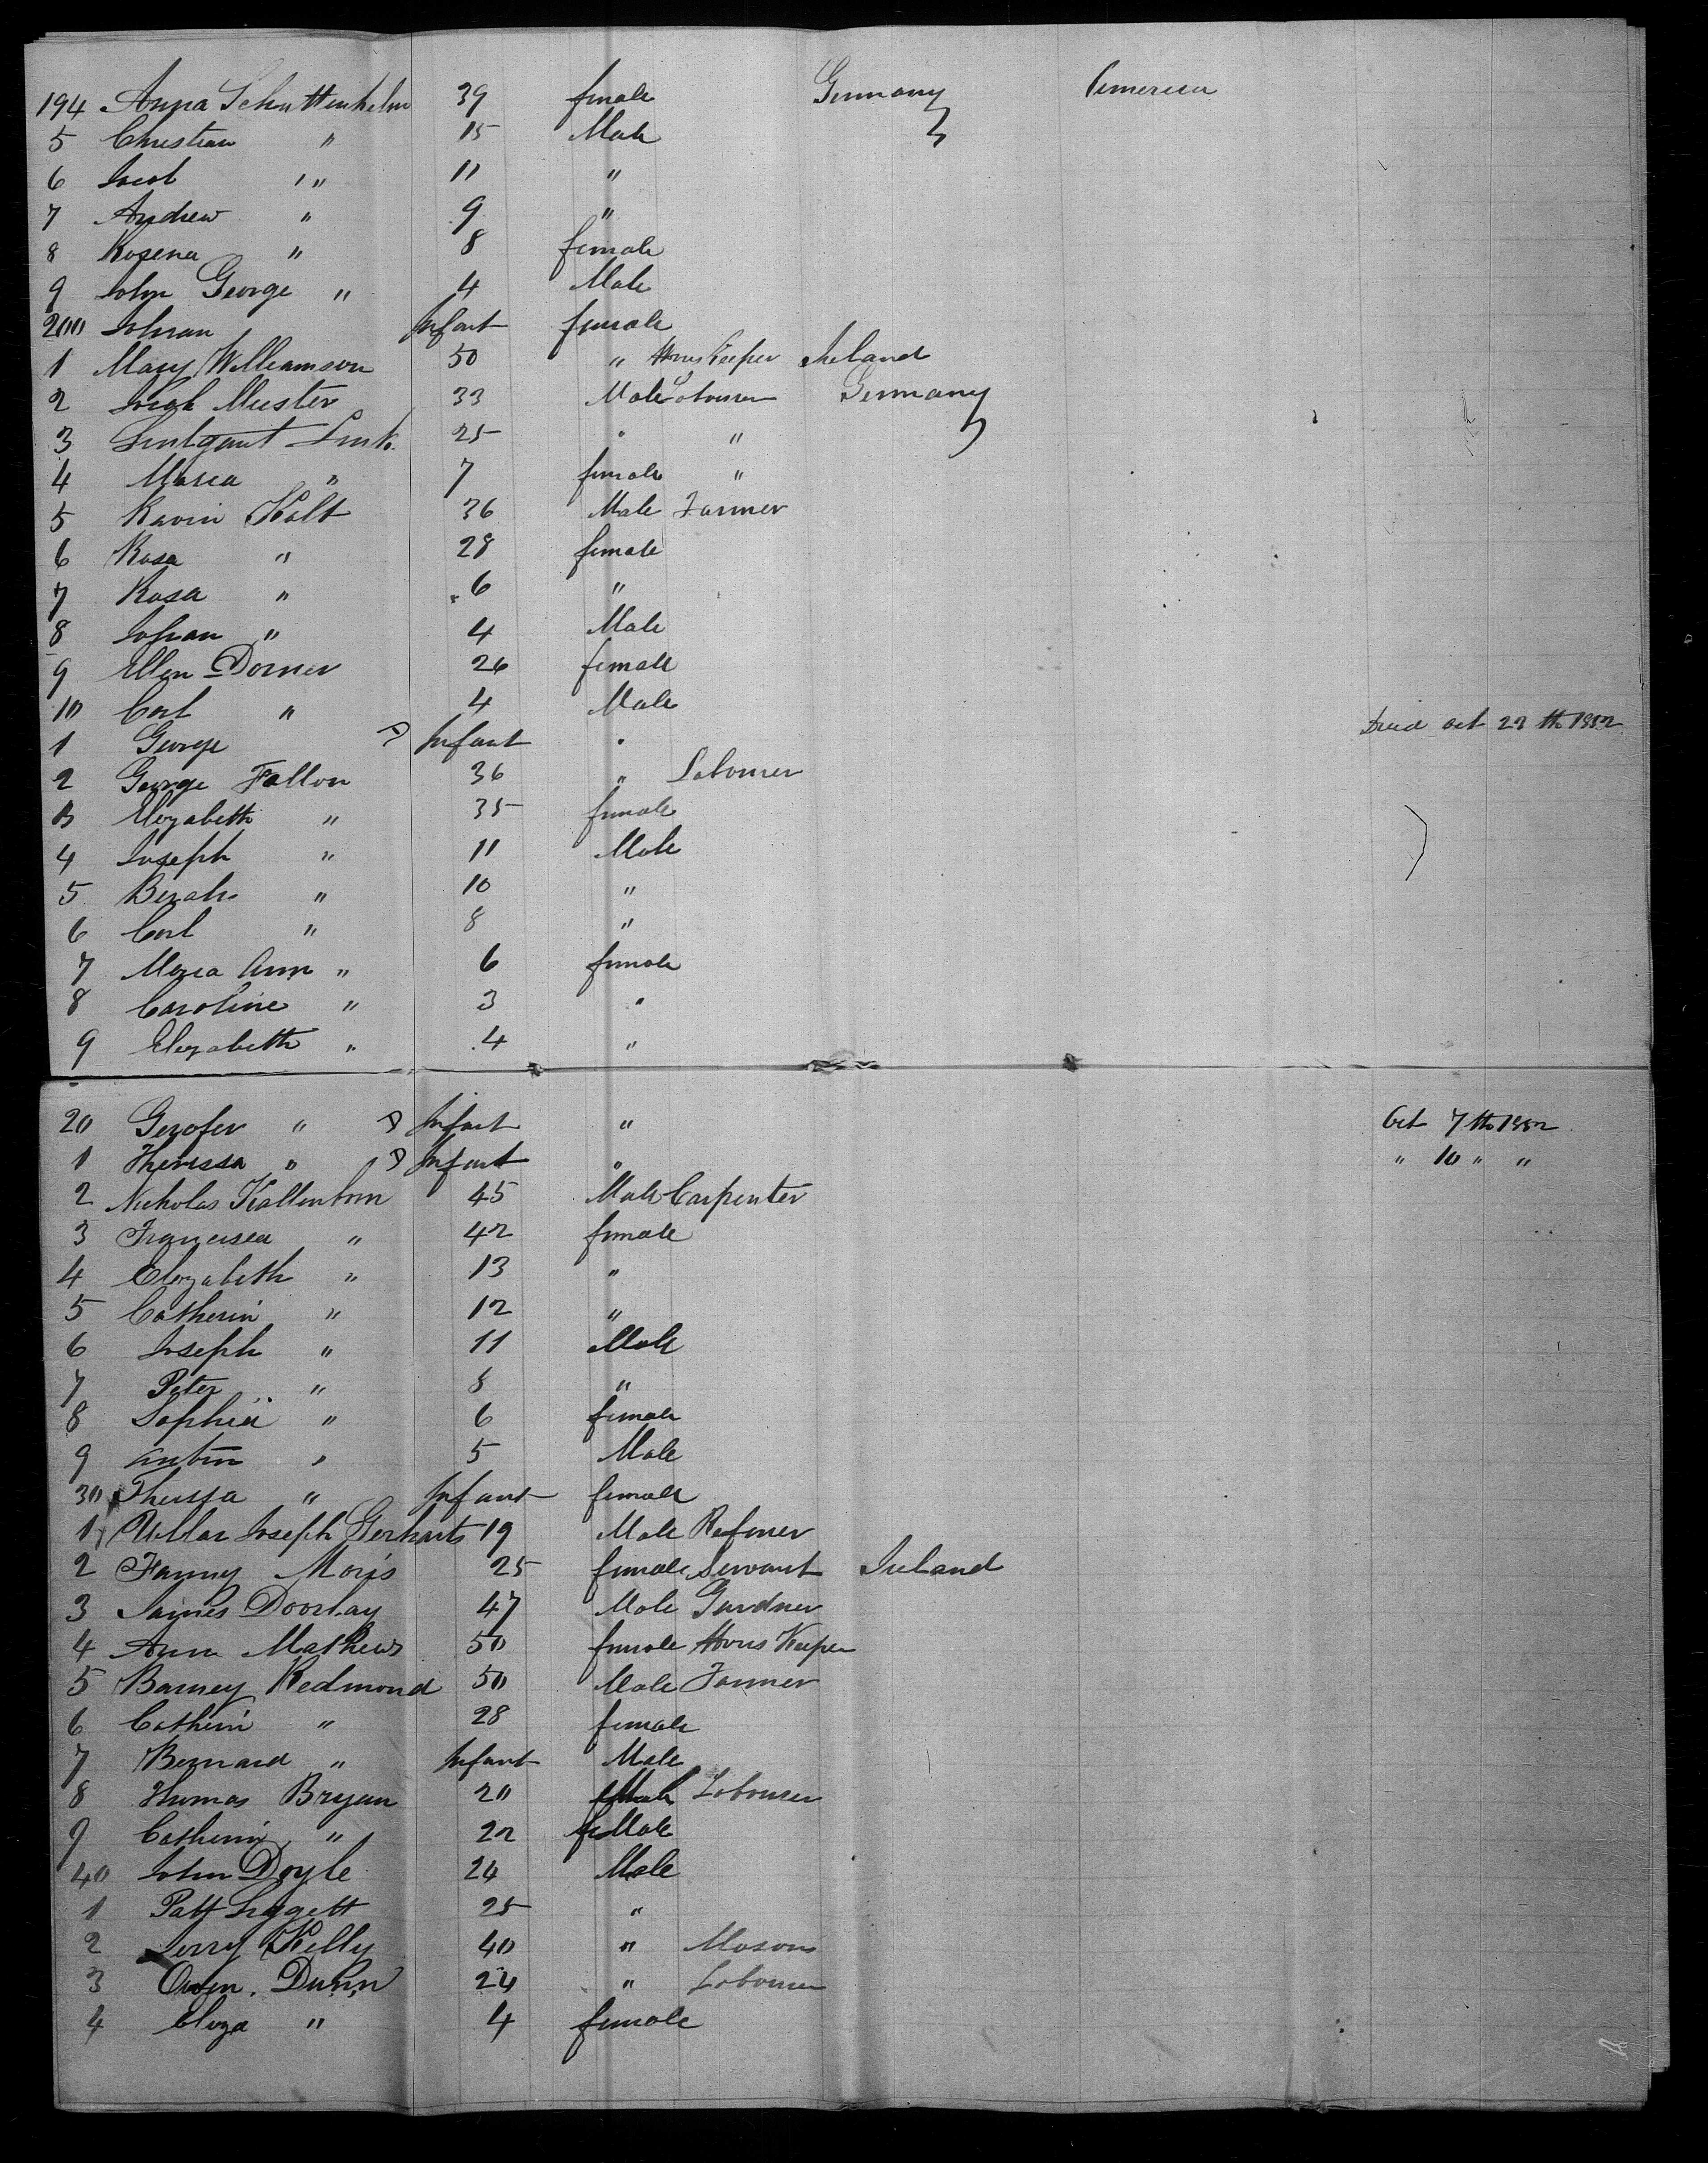 194 Anna Schuttenhelm 39 female Germany America
5 Christian " 15 Male
6 Jacob " 11 "
7 Andrew " 9 "
8 Rosena " 8 female
9 John George " 4 Male
200 Johan Infant female
1 Mary Williamson 50 " Hous Keeper Ireland
2 Muster 33 Male Labourer Germany
3 Link 25 " "
4 Maria " 7 female "
5 Kavin Kalt 36 Male Farmer
6 Rosa " 28 female
7 Rosa " 6 "
8 Johan " 4 Male
9 Ellen Dorner 26 female
10 Carl " 4 Male
1 George D Infant " Died oct 23 th 1852
2 George Fallon 36 " Labourer
3 Elizabeth " 35 female
4 Joseph " 11 Male
5 " 10 "
6 Carl " 8 "
7 Maria Ann " 6 female
8 Caroline " 3 "
9 Elizabeth " 4 "
20 Gerofer " D Infant " Oct 7 th 1852
1 Theressa " D Infant " " 10 " "
2 Nicholas Kallenborn 45 Male Carpenter
3 Francisca " 42 female
4 Elizabeth " 13 "
5 Catherin " 12 "
6 Joseph " 11 Male
7 Peter " 8 "
8 Sophia " 6 female
9 Anton " 5 Male
30 Theressa " Infant female
1 Joseph Gerharts 19 Male
2 Fanny Moris 25 female Servant Ireland
3 James Doorlay 47 Male Gardner
4 Ann Mathews 50 female Hous Keeper
5 Barney Redmond 50 Male Farmer
6 Catherin " 28 female
7 Bernard " Infant Male
8 Thomas Bryan 20 Male Labourer
9 Catherin " 22 feMale
40 John Doyle 24 Male
1 Patt Liggett 25 "
2 Jerry Kelly 40 " Mason
3 Owen Dunn 24 " Labourer
4 Eliza " 4 female